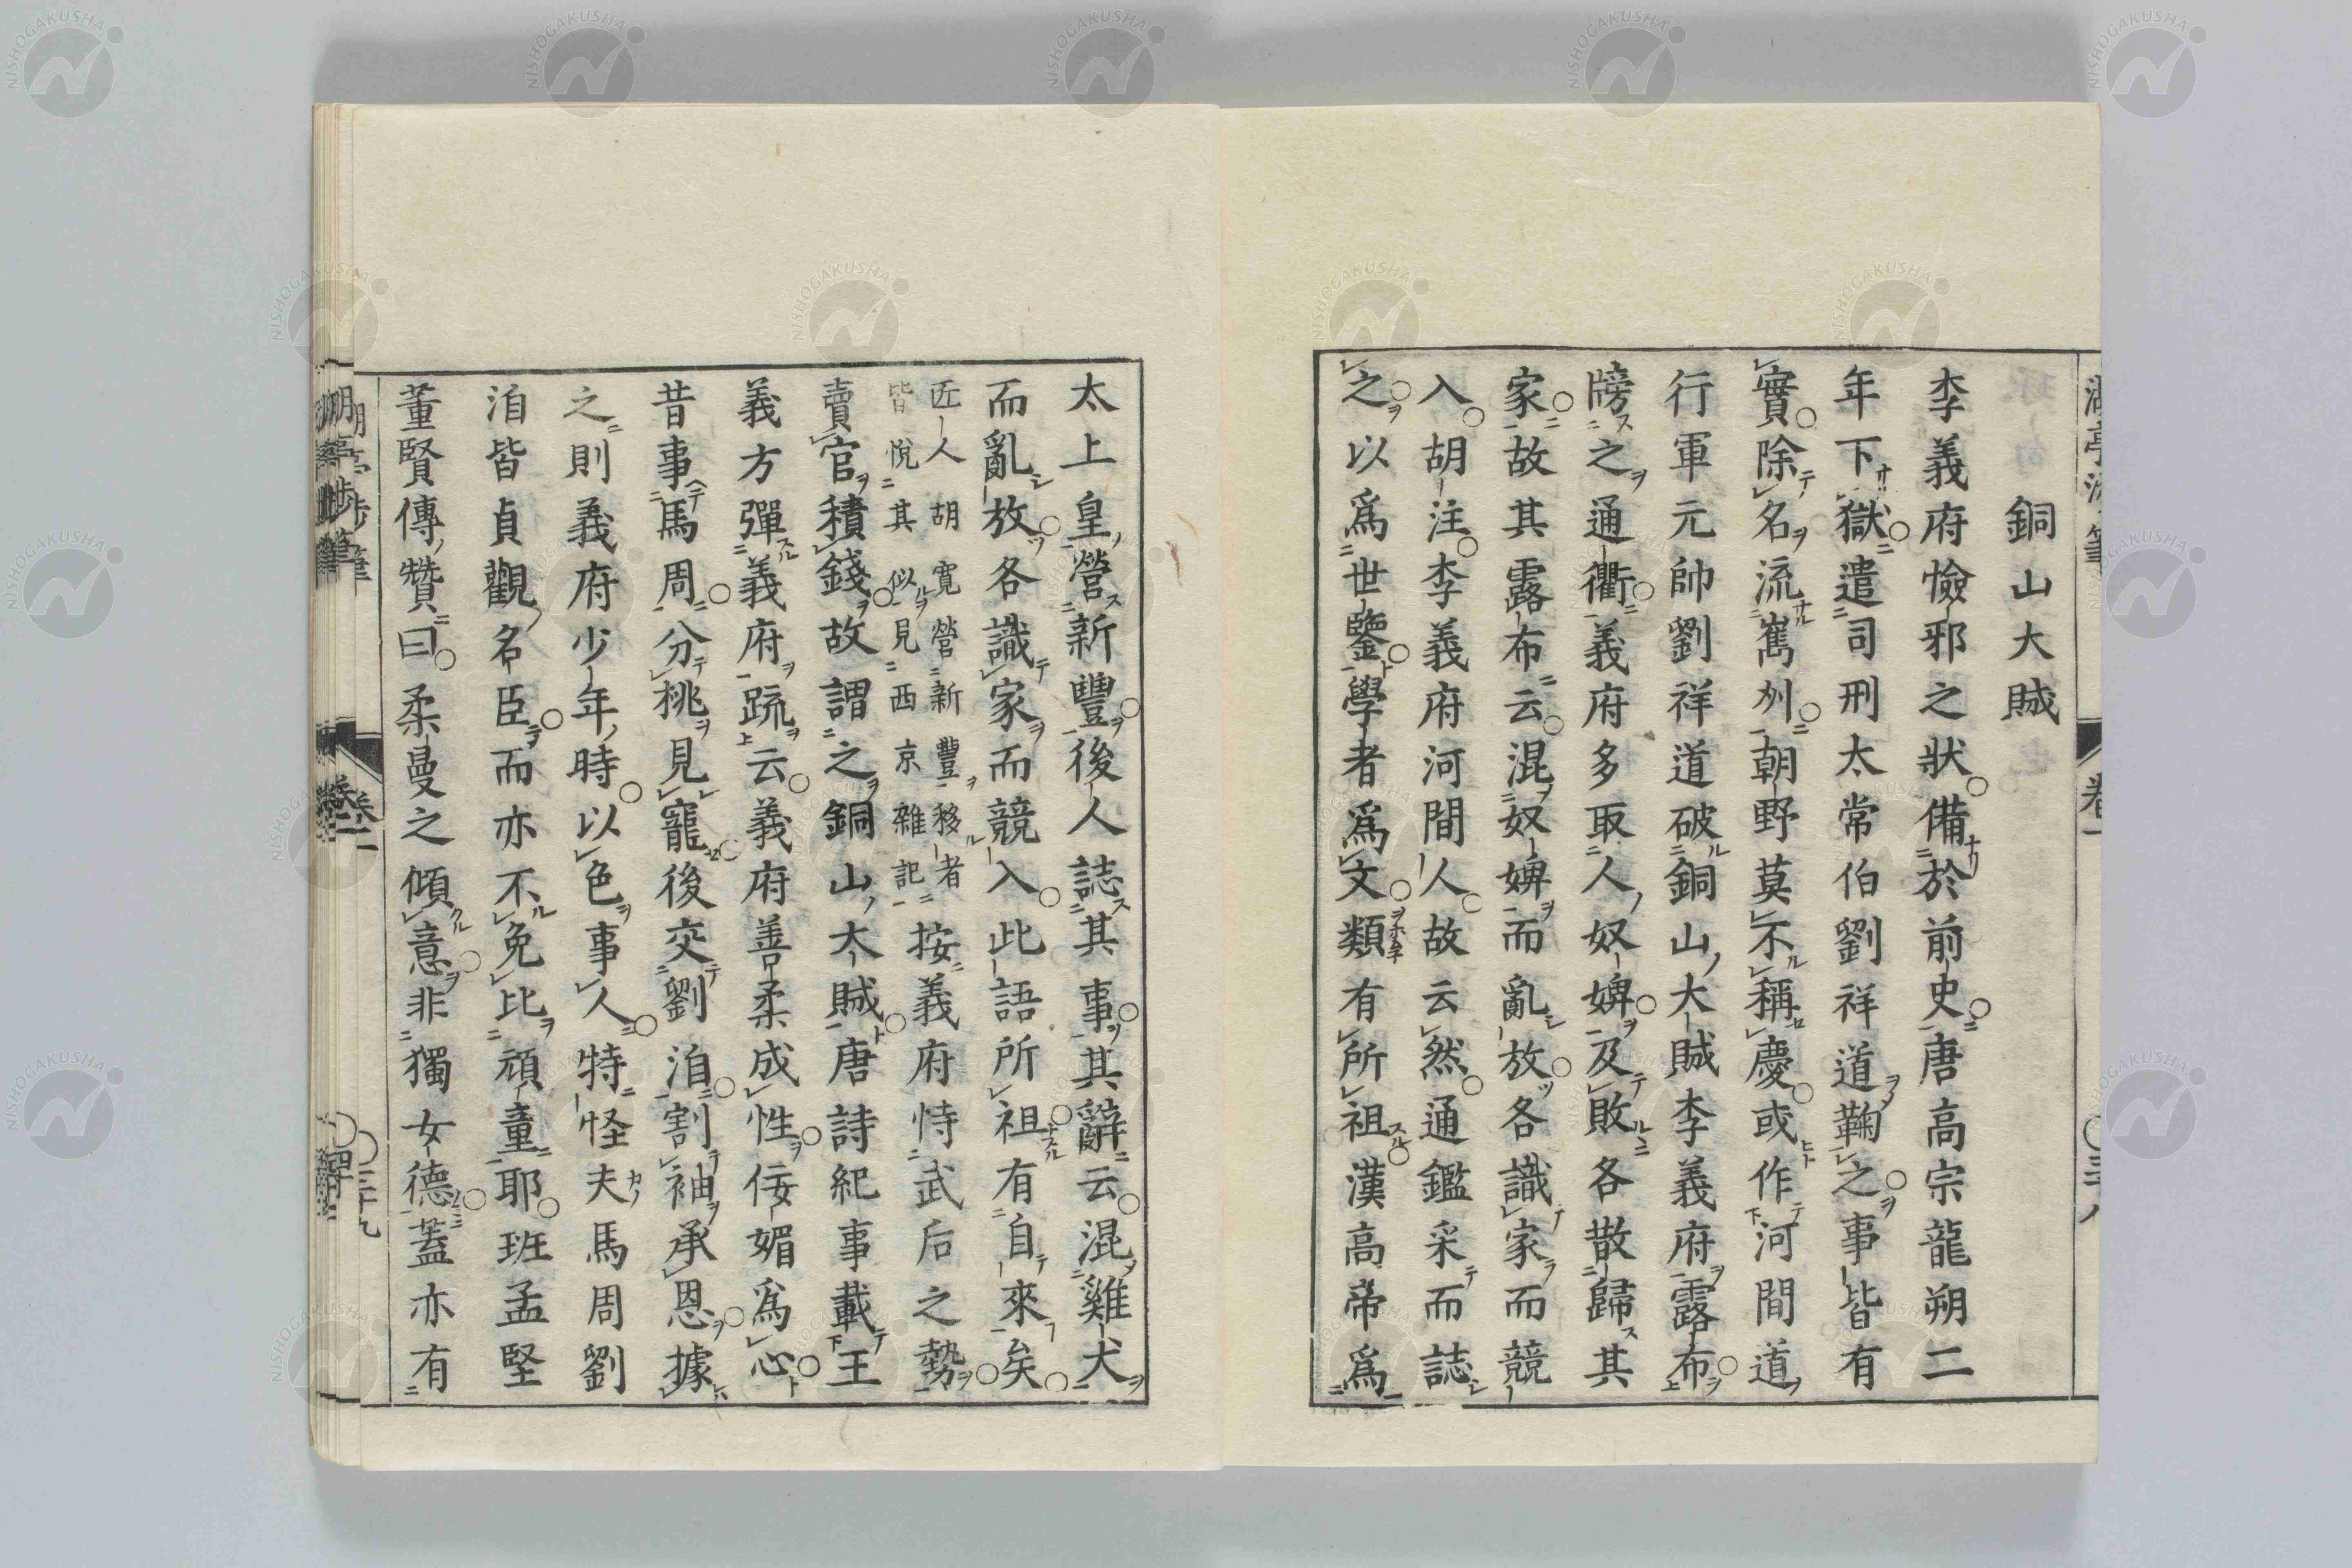 銅山大賊
李義府憸邪之狀備於前史唐高宗龍朔二
年下獄遣司刑太常伯劉祥道鞠之事皆有
實除名流巂州朝野莫不稱慶或作河間道
行軍元帥劉祥道破銅山大賊李義府露布
牓之通衢義府多取人奴婢及敗各散歸其
家故其露布云混奴婢而亂放各識家而競
入胡注李義府河間人故云然通鑑采而誌
之以爲世鑒學者爲文類有所祖漢高帝爲
太上皇營新豐後人誌其事其辭云混雞犬
而亂放各識家而競入此語所祖有自來矣
近人胡寬營新豐移者
皆悅其似見西京雜記
按義府恃武后之勢
賣官積錢故謂之銅山大賊唐詩紀事載王
義方彈義府疏云義府善柔成性佞媚爲心
昔事馬周分桃見寵後交劉洎割袖承恩據
之則義府少年時以色事人特怪夫馬周劉
洎皆貞觀名臣而亦不免比頑童耶班孟堅
董賢傳贊曰柔曼之傾意非獨女德蓋亦有
卷一
三十九
NISHOGAKUSHA